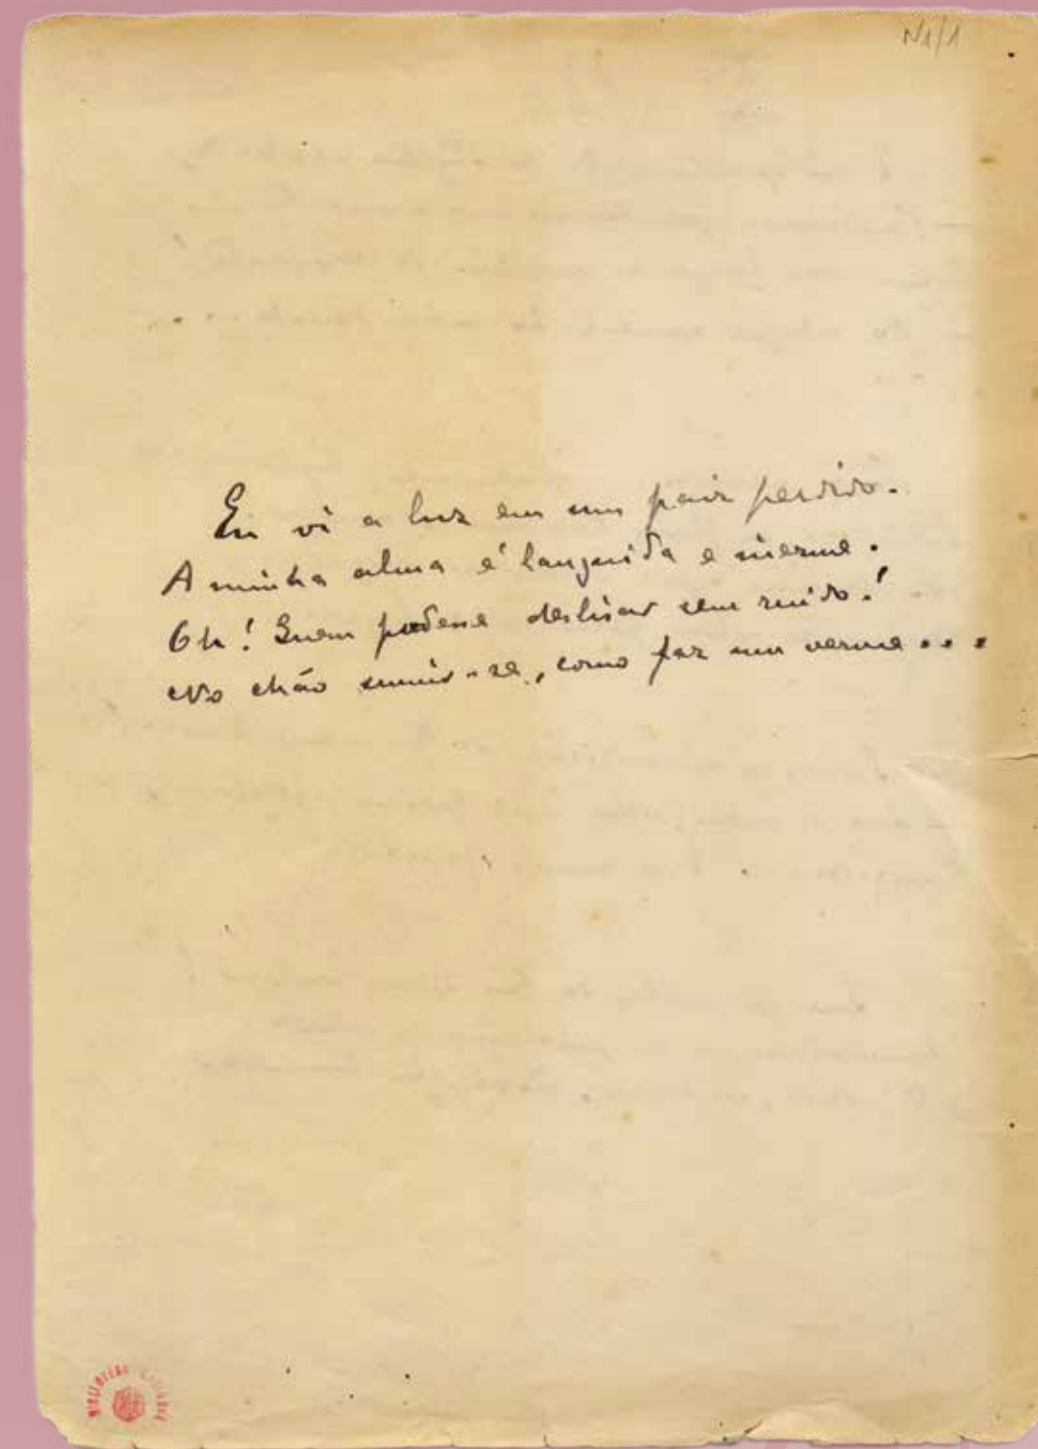 N1/1
Eu vi a luz em um paiz perdido.
A minha alma é languida e inerme.
Oh! Quem podesse deslisar sem ruido!
No chão sumir-se, como faz um verme...
BIBLIOTECA